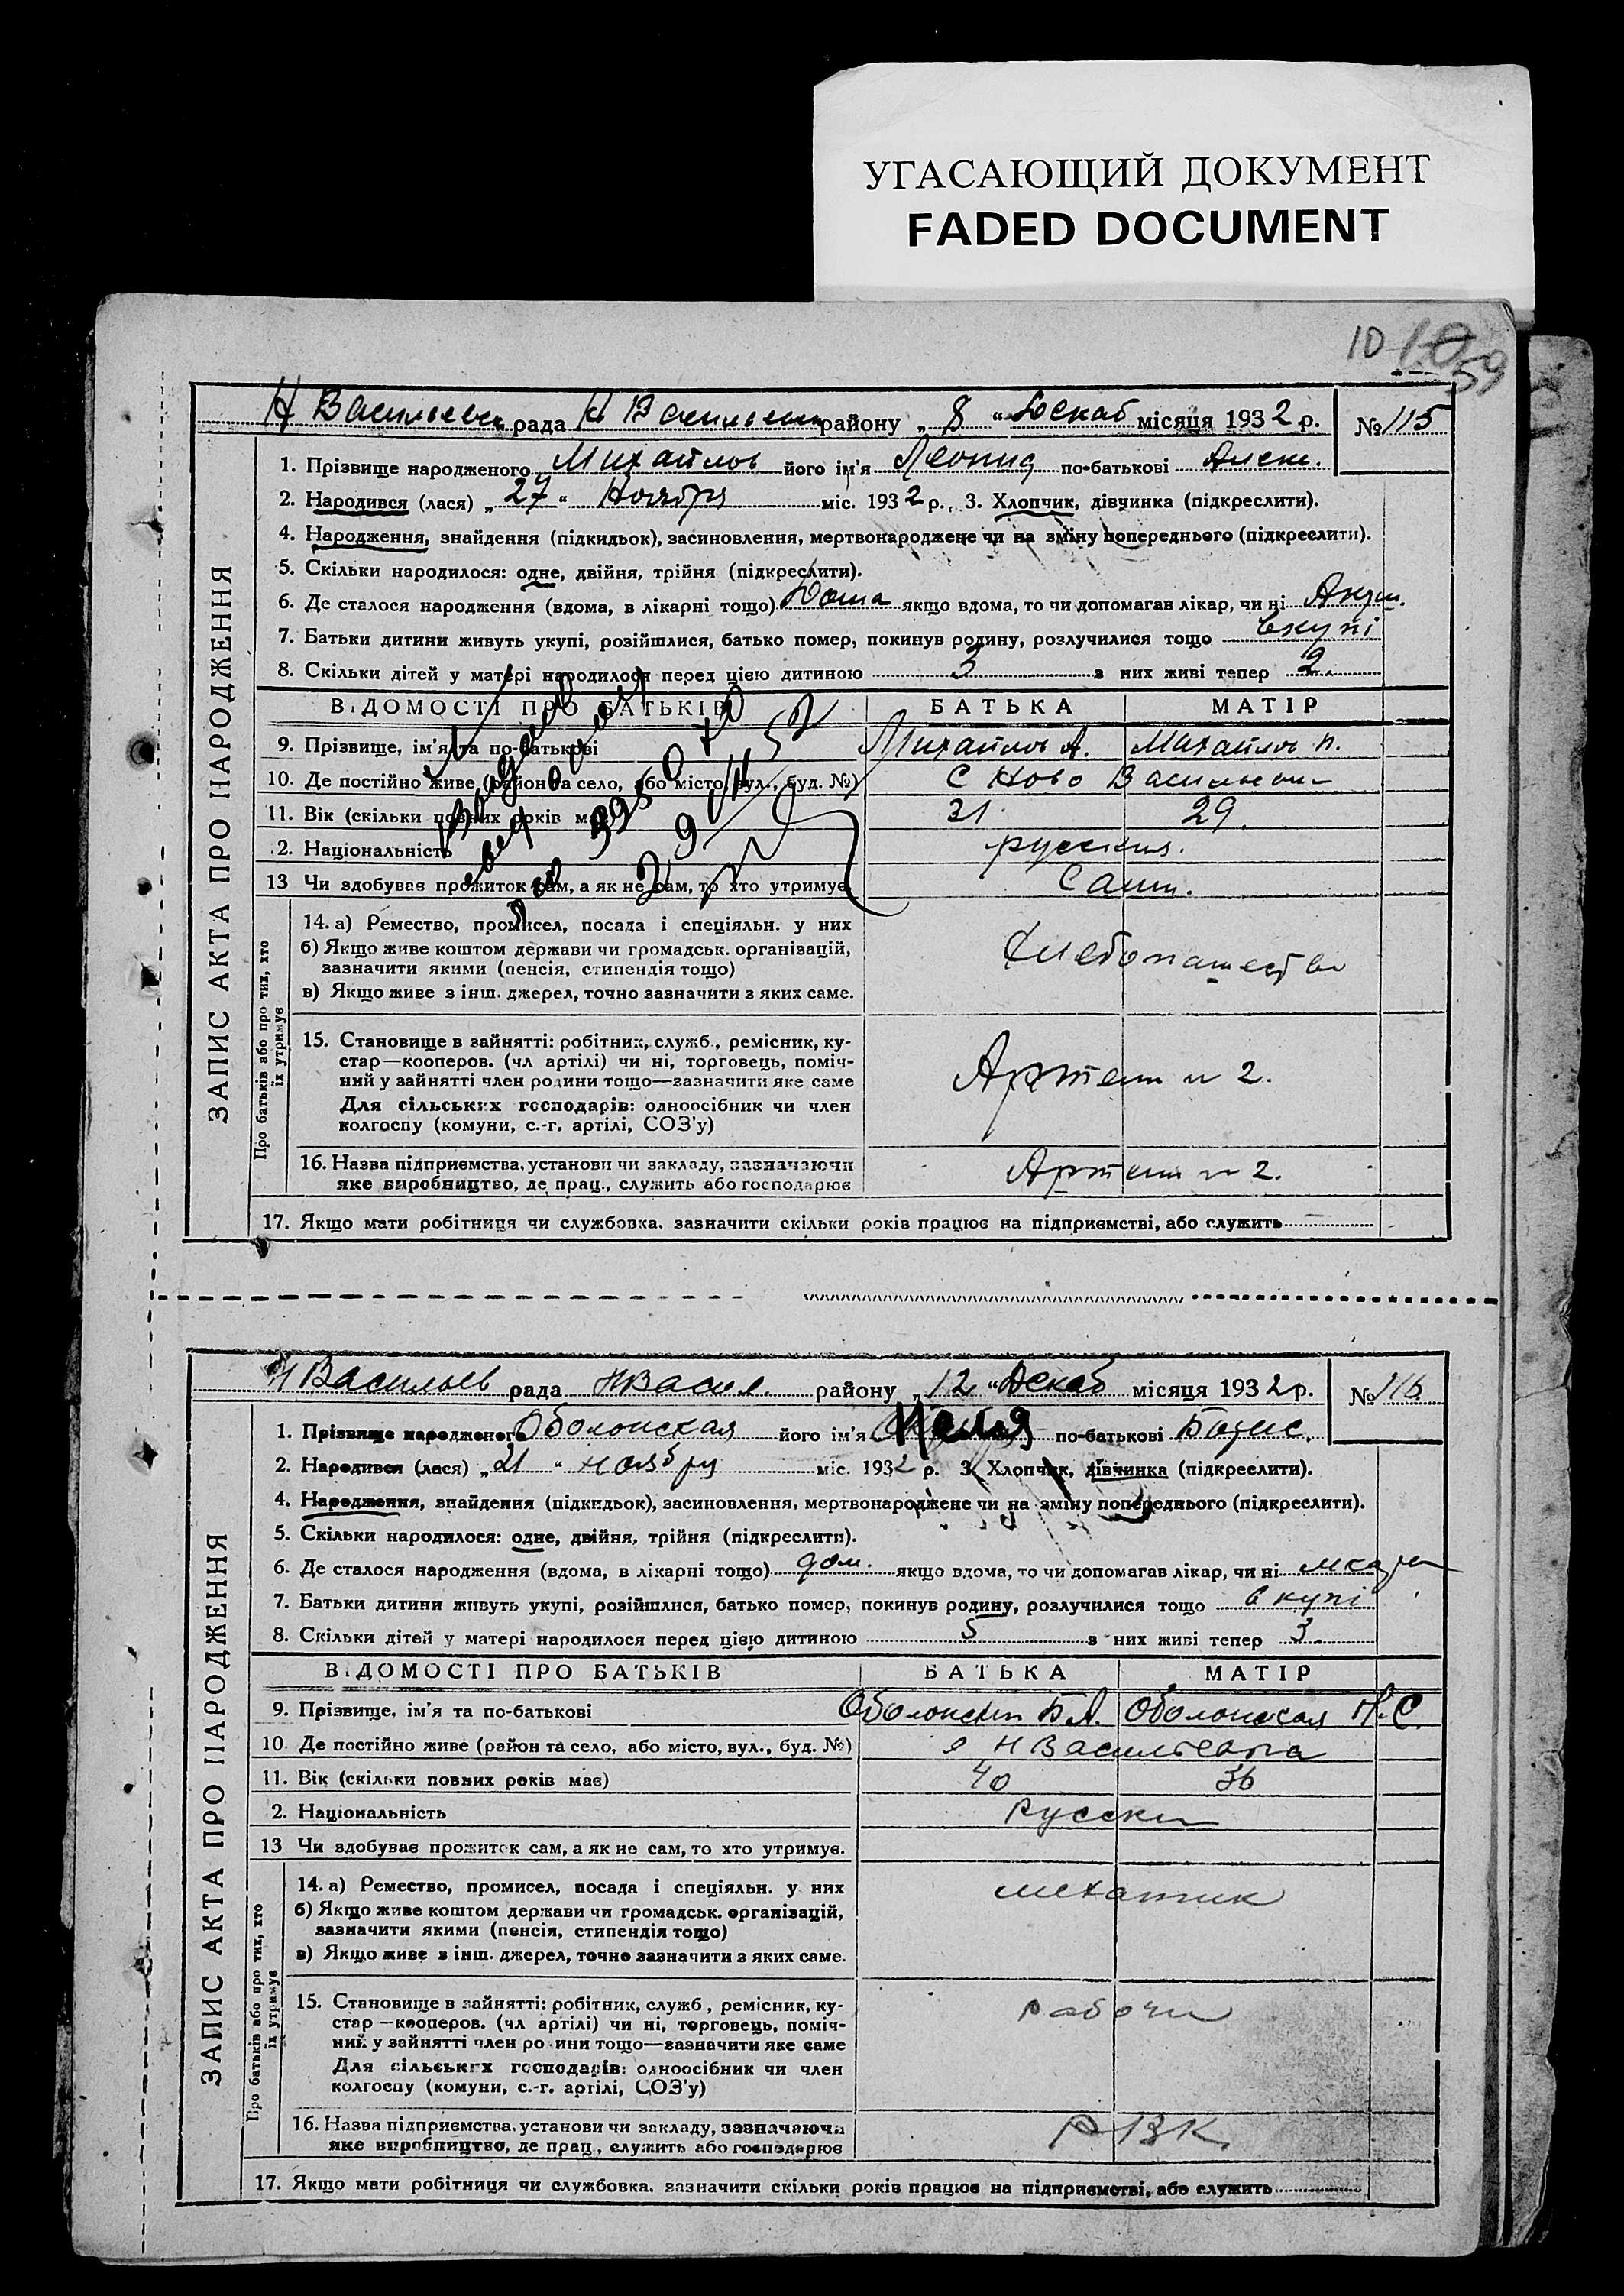 УГАСАЮЩИЙ ДОКУМЕНТ
FADED DOCUMENT
10 59
Н Васильевск рада Н Васильевск району „ 8 “ Декаб місяця 1932 р. № 115
ЗАПИС АКТА ПРО НАРОДЖЕННЯ
1. Прізвище народженого Михайлов його ім'я Леонид по-батькові Алекс.
2. Народився (лася) „ 27 “ Ноября міс. 1932 р. 3. Хлопчик, дівчинка (підкреслити).
4. Народження, знайдення (підкидьок), засиновлення, мертвонароджене чи на зміну попереднього (підкреслити).
5. Скільки народилося: одне, двійня, трійня (підкреслити).
6. Де сталося народження (вдома, в лікарні тощо) Дома якщо вдома, то чи допомагав лікар, чи ні
7. Батьки дитини живуть укупі, розійшлися, батько помер, покинув родину, розлучилися тощо вкупі
8. Скільки дітей у матері народилося перед цією дитиною 3 з них живі тепер 2.
ВІДОМОСТІ ПРО БАТЬКІВ БАТЬКА МАТІР
9. Прізвище, ім'я та по-батькові Михайлов А. Михайлов
10. Де постійно живе (район та село, або місто, вул., буд. №) С Ново Васильевк
11. Вік (скільки повних років має) 31 29
2. Національність русския.
13 Чи здобував прожиток сам, а як не сам, то хто утримує. Сами.
Про батьків або про тих, хто їх утримує
14. а) Ремество, промисел, посада і спеціяльн. у них
б) Якщо живе коштом держави чи громадськ. організацій,
зазначити якими (пенсія, стипендія тощо)
в) Якщо живе з інш. джерел, точно зазначити з яких саме.
Хлебопашество
15. Становище в зайнятті: робітник, служб., ремісник, ку-
стар—кооперов. (чл артілі) чи ні, торговець, поміч-
ний у зайнятті член родини тощо—зазначити яке саме
Для сільських господарів: одноосібник чи член
колгоспу (комуни, с.-г. артілі, СОЗ'у)
Артели № 2.
16. Назва підприємства, установи чи закладу, зазначаючи
яке виробництво, де прац., служить або господарює
Артели № 2.
17. Якщо мати робітниця чи службовка, зазначити скільки років працює на підприємстві, або служить
Н Васильев рада Н Васил. району „ 12 “ Декаб місяця 1932 р. № 116
ЗАПИС АКТА ПРО НАРОДЖЕННЯ
1. Прізвище народженого Оболонская його ім'я по-батькові Борис.
2. Народився (лася) „ 21 “ ноября міс. 1932 р. 3. Хлопчик, дівчинка (підкреслити).
4. Народження, знайдення (підкидьок), засиновлення, мертвонароджене чи на зміну попереднього (підкреслити).
5. Скільки народилося: одне, двійня, трійня (підкреслити).
6. Де сталося народження (вдома, в лікарні тощо) дом. якщо вдома, то чи допомагав лікар, чи ні
7. Батьки дитини живуть укупі, розійшлися, батько помер, покинув родину, розлучилися тощо вкупі
8. Скільки дітей у матері народилося перед цією дитиною 5 з них живі тепер 3.
ВІДОМОСТІ ПРО БАТЬКІВ БАТЬКА МАТІР
9. Прізвище, ім'я та по-батькові Оболонский Б.А. Оболонская С.
10. Де постійно живе (район та село, або місто, вул., буд. №) Н Васильевка
11. Вік (скільки повних років має) 40 36
2. Національність русски
13 Чи здобував прожиток сам, а як не сам, то хто утримує.
Про батьків або про тих, хто їх утримує
14. а) Ремество, промисел, посада і спеціяльн. у них
б) Якщо живе коштом держави чи громадськ. організацій,
зазначити якими (пенсія, стипендія тощо)
в) Якщо живе з інш. джерел, точно зазначити з яких саме.
механик
15. Становище в зайнятті: робітник, служб., ремісник, ку-
стар—кооперов. (чл артілі) чи ні, торговець, поміч-
ний у зайнятті член родини тощо—зазначити яке саме
Для сільських господарів: одноосібник чи член
колгоспу (комуни, с.-г. артілі, СОЗ'у)
рабочи
16. Назва підприємства, установи чи закладу, зазначаючи
яке виробництво, де прац., служить або господарює
РВК.
17. Якщо мати робітниця чи службовка, зазначити скільки років працює на підприємстві, або служить